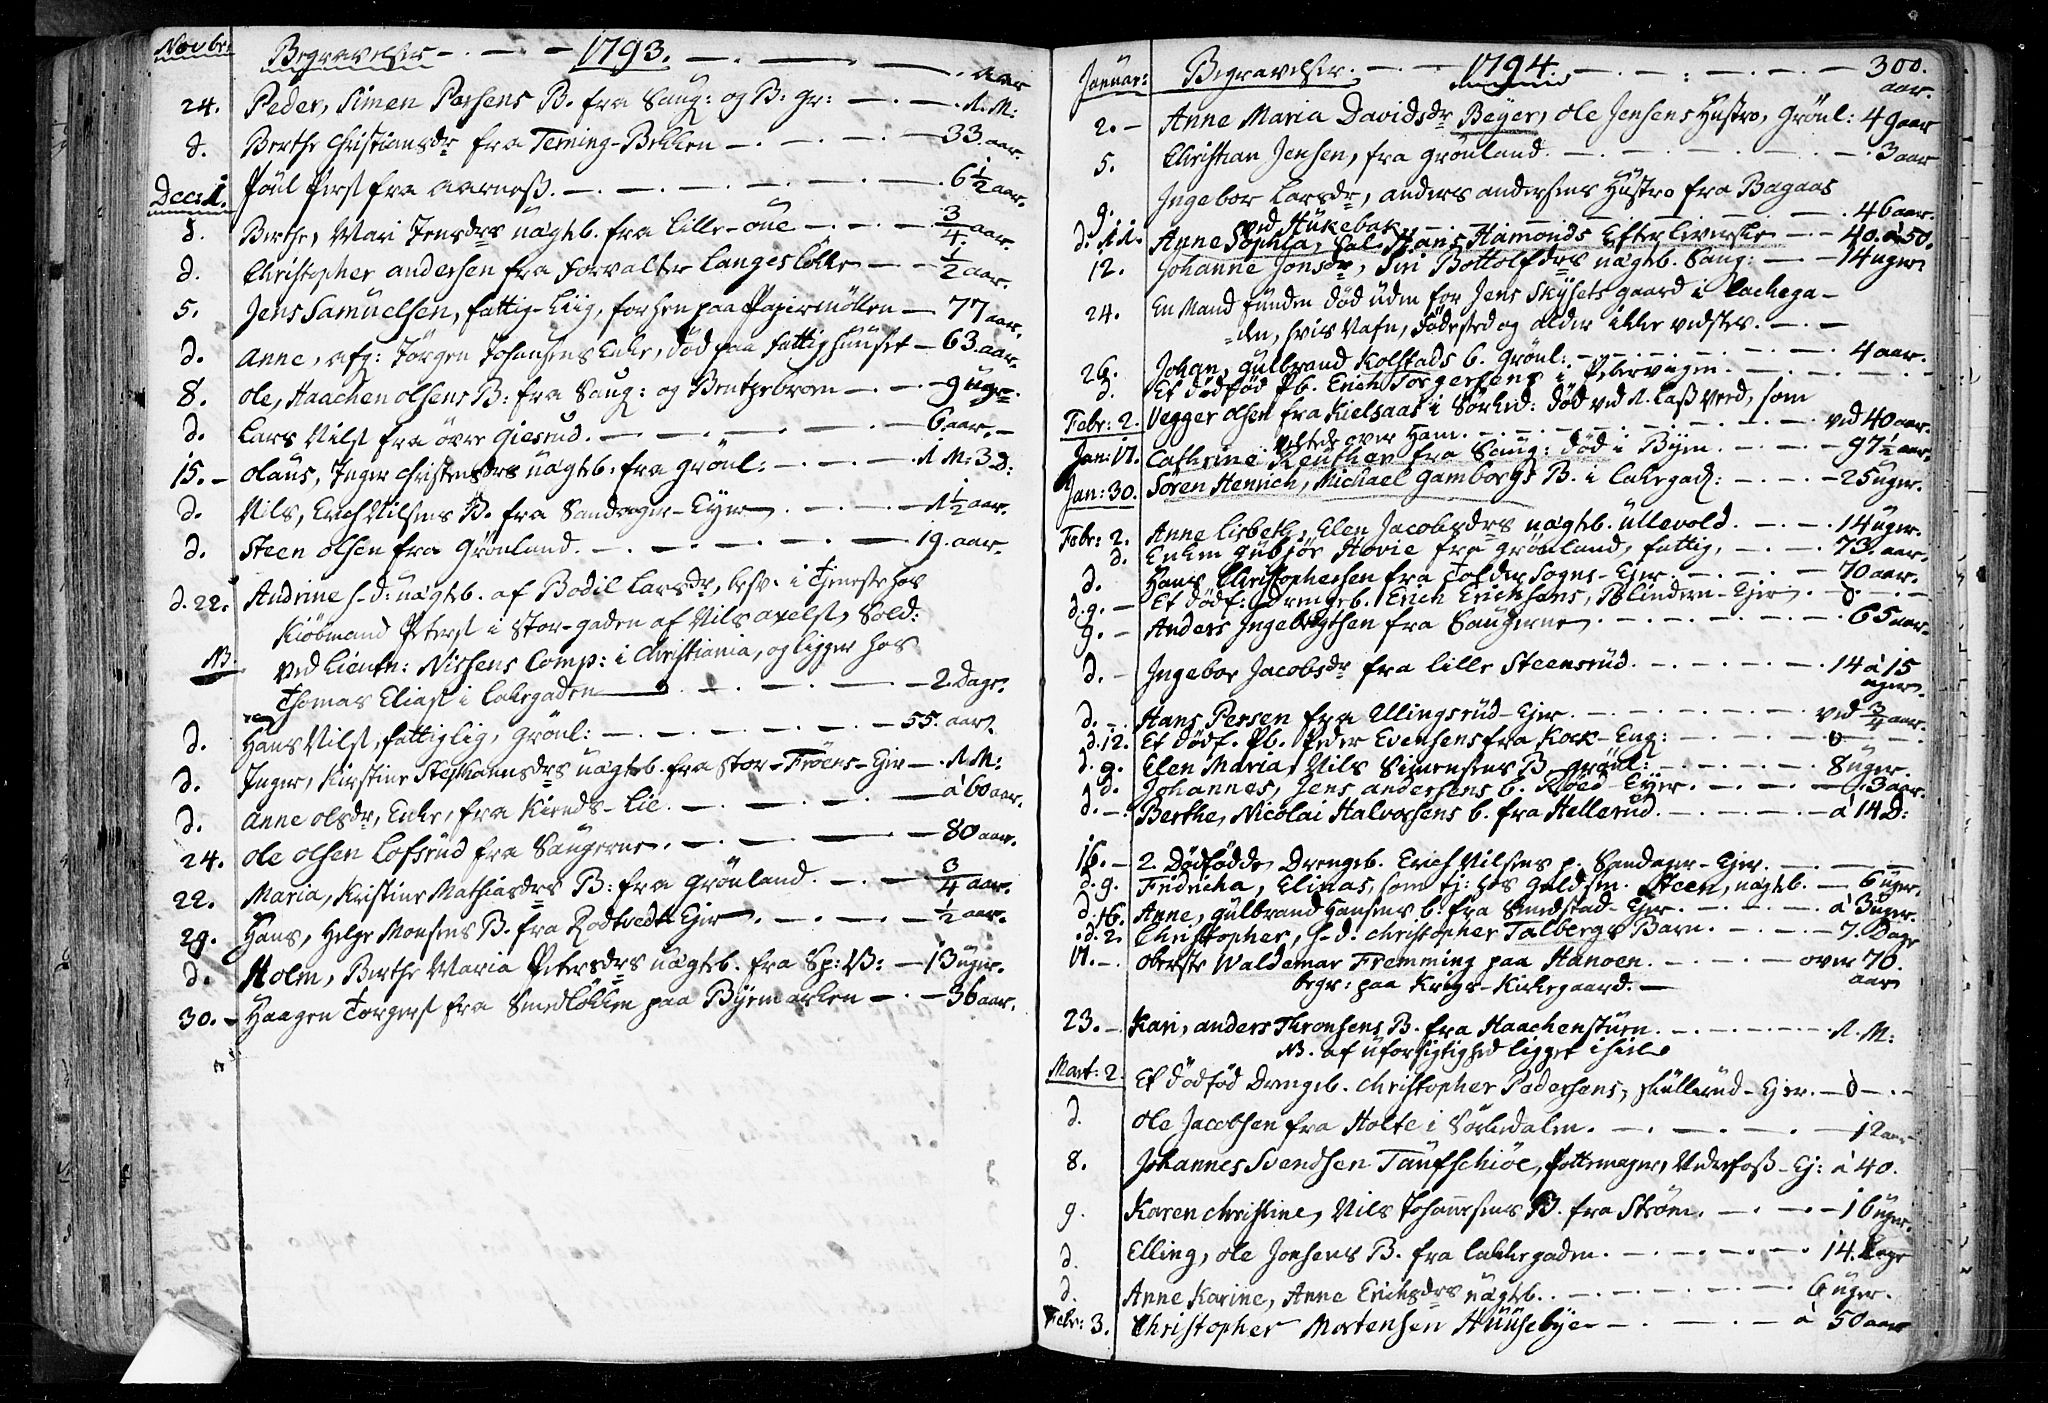 Novbr: Begravelser - . - . - 1793. - . - . - aar
24. Peder, Simen Persens B. fra Saug: og B: Gr: - . - . 1. M:
d. Berthe Christiansdr fra Teming-Bekken - . - . - 33. aar.
Dec: 1. Poul Pers: fra Aarness. - . - . - 6 1/2 aar.
d. Berthe, Mari Jensdrs uægteb. fra Lille-oue - . - . - 3/4 aar.
d. Christopher andersen fra Forvalter Langes Løkke - - 1/2 aar.
5. Jens Samuelsen, fattig-Liig, forhen paa Papirmøllen - 77 aar.
d. Anne, afg: Jørgen Johansens Enke, død paa fattighuuset - 63. aar.
8. Ole, Haachen Olsens B: fra Saug: og Bentsebroen - . - . 9 uger.
d. Lars Nils: fra øvre Giesrud. - . - . - 6 aar. -
15. - Olaus, Inger Christensdrs uægteb: fra Grønl: - . - . 1 M: 3 d:
d. Nils, Erich Nilsens B. fra Sandager-Eyer - . - . - 1 1/2 aar.
d. Steen Olsen fra Grønland. - . - . - 19. aar.
d. 22. Andrine h-d: uægteb. af Bodil Larsdr, besv: i Tjeneste hos
Kiøbmand Peters: i Stor-gaden af Nils axels:, Sold:
NB. ved Lieutn: Nissens Comp: i Christiania, og ligger hos
Thomas Elias: i Lakegaden - . - . - 2. Dage.
d. Hans Nils:, fattiglig, Grønl: - . - . - 55. aar.
d. Inger, Kirstine Stephansdrs uægteb. fra Stor-Frøens-Ejer - . 1 M:
d. Anne Olsdr, Enke, fra Kiends-Lie. - . - . - à 60 aar.
24. Ole Olsen Lofsrud fra Saugerne. - . - . - 80 aar.
22. Maria, Kristine Mathiasdrs B: fra Grønland. - . - 3/4 aar.
29. Hans, Helge Monsens B. fra Rodtvedt Ejer. - . - . - 1/2 aar.
d. Holm, Berthe Maria Petersdrs uægteb. fra Sp: V: - 13 uger.
30. - Haagen Torgers: fra Smedløkken paa Byemarken - . - 36 aar.
Januar: Begravelser. - . - 1794. - . - : - . - . - 300.
aar.
2. - Anne Maria Davidsdr Beyer, Ole Jensens Hustro, Grønl: 49 aar
5. Christian Jensen, fra Grønland. - . - . - 3 aar
9. Ingebor Larsdr, anders andersens Hustro fra Bagaas
ved Hukebak. - . - . - 46 aar.
d. 11. Anne Sophia, Sal. Hans Hamonds Efterleverske - - 40. à 50.
12. Johanne Jonsdr, Siri Bottolfdrs uægteb. Saug: - . - 14 uger
24. En Mand funden død uden for Jens Skysets gaard i Lachega-
den, hvis Nafn, Fødested og alder ikke vidstes. - . -
26. Johan, Gulbrand Kolstads b. Grønl: - . - . - 4 aar.
d. Et dødfød Pb. Erich Torgersens i Pebervigen. - . - . -
Febr: 2. Vegger Olsen fra Kielsaas i Sørked: død ved 1. Lass Veed, som
veltede over Ham. - . - . - ved 40 aar.
Jan: 17. Cathrine Reuther fra Saug: død i Byen. - . - . - 97 1/2 aar.
Jan: 30. Søren Henrich, Michael Gamborgs B. i Lakegad: - . - . - 25 uger.
Febr: 2. Anne Lisbeth, Elen Jacobsdrs uægteb. Ullevold. - . - 14 uger.
d. Enken Gubjør Hovie fra Grønland, fattig, - . - 73. aar.
d. Hans Christophersen fra Tolder Sogns-Ejer. - . - . - 70 aar.
d. 9. - Et dødf: Drengeb. Erich Erichsens, Blindern-Ejer. - 0. - . -
9. - Anders Ingebrigthsen fra Saugerne. - . - . - 65 aar.
d. - Ingebor Jacobsdr fra Lille Steensrud. - . - . - 14 à 15
uger.
d. - . Hans Persen fra Ellingsrud-Ejer. - . - . - ved 3/4 aar.
d. 12. Et dødf. Pb. Peder Evensens fra Kock-Eng: - . - . - 0 - . -
d. 9. Elen Maria, Nils Simensens B. Grønl: - . - . - 8 uger.
d. Johannes, Jens andersens b. Røed-Ejer. - . - . - 3 aar.
d. - . Berthe, Nicolai Halvorsens b. fra Hellerud. - . - . - à 14 D:
16. - 2 Dødfødde Drengeb. Erich Nilsens p. Sandager-Ejer. - . - . -
d. 9. Fredricha, Elinas, som tj: hos Guldsm. Steen, uægteb. - 6 uger.
d. 16. Anne, Gulbrand Hansens b. fra Smedstad-Ejer. - . - . - à 3 uger.
d. 2. Christopher, h-d. Christopher Talbergs Barn. - . - . - 7. Dage
17. - Oberste Waldemar Flemming paa Hanoen. - . - over 70.
begr: paa Krigs-Kirkegaard. - aar
23. - Kari, anders Thronsens B. fra Haachenstuen. - . - . - 1. M:
NB. af uforsigtighed ligget ihiel
Mart: 2. Et dødfød Drengeb. Christopher Pedersens, Skullerud-Ejer. - 0 - . -
d. Ole Jacobsen fra Holte i Sørkedalen. - . - . - 12 aar
8. Johannes Svendsen Taufschiøe, Pottemager, Vedrefoss-Ej: à 40.
9. Karen Christine, Nils Johannesens B. fra Strøm. - . - . - 16 uger.
d. Elling, Ole Jonsens B. fra Lakkegaden. - . - . - 14. Dage
d. Anne Karine, Anne Erichsdrs uægteb. - . - . - 6 uger.
Febr: 3. Christopher Mortensen Huusebye - . - . - à 50 aar